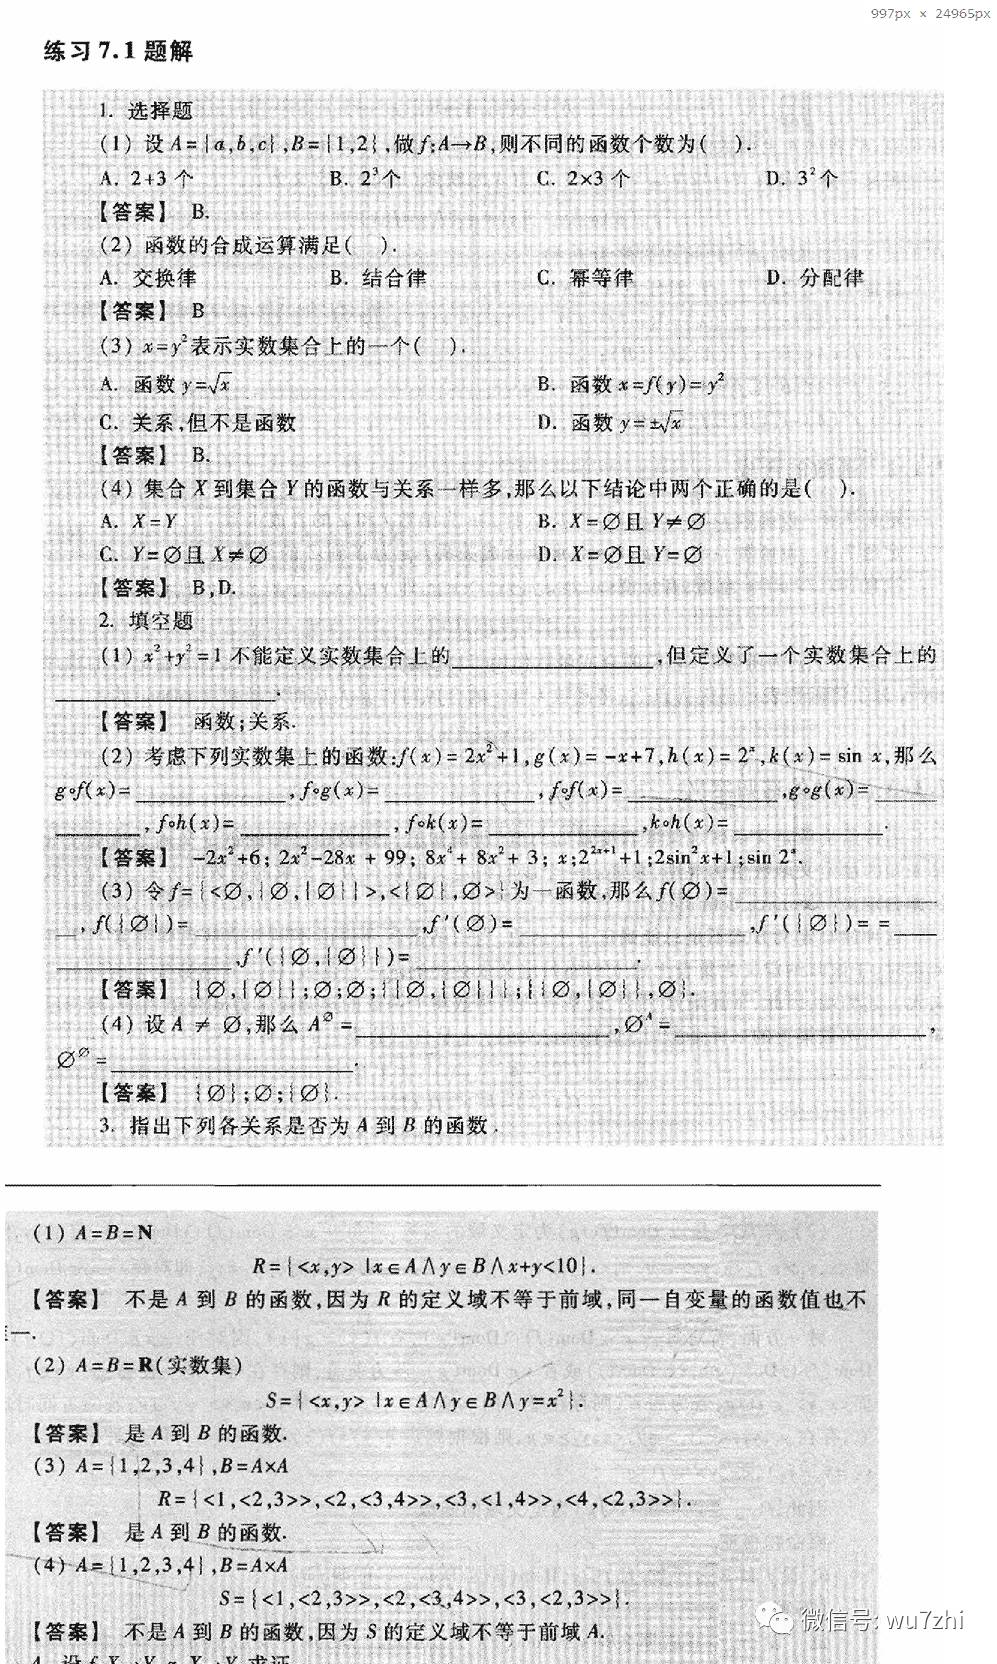 997px × 24965px
练习 7.1 题解
1. 选择题
(1) 设 A={a,b,c},B={1,2},做 f:A→B,则不同的函数个数为( ).
A. 2+3 个 B. 2³个 C. 2×3 个 D. 3²个
【答案】 B.
(2) 函数的合成运算满足( ).
A. 交换律 B. 结合律 C. 幂等律 D. 分配律
【答案】 B
(3) x=y²表示实数集合上的一个( ).
A. 函数 y=√x B. 函数 x=f(y)=y²
C. 关系,但不是函数 D. 函数 y=±√x
【答案】 B.
(4) 集合 X 到集合 Y 的函数与关系一样多,那么以下结论中两个正确的是( ).
A. X=Y B. X=∅且 Y≠∅
C. Y=∅且 X≠∅ D. X=∅且 Y=∅
【答案】 B,D.
2. 填空题
(1) x²+y²=1 不能定义实数集合上的________,但定义了一个实数集合上的
________.
【答案】 函数;关系.
(2) 考虑下列实数集上的函数:f(x)=2x²+1,g(x)=-x+7,h(x)=2ˣ,k(x)=sin x,那么
g∘f(x)=________,f∘g(x)=________,f∘f(x)=________,g∘g(x)=____
____,f∘h(x)=________,f∘k(x)=________,k∘h(x)=________.
【答案】 -2x²+6; 2x²-28x + 99; 8x⁴+ 8x²+ 3; x;2²ˣ⁺¹+1;2sin²x+1;sin 2ˣ.
(3) 令 f={<∅,{∅,{∅}}>,<{∅},∅>}为一函数,那么 f(∅)=________
__,f({∅})=________,f′(∅)=________,f′({∅})= =____
________,f′({∅,{∅}})=________.
【答案】 {∅,{∅}};∅;∅;{{∅,{∅}}};{{∅,{∅}},∅}.
(4) 设 A ≠ ∅,那么 A^∅ =________,∅^A =________,
∅^∅ =________.
【答案】 {∅};∅;{∅}.
3. 指出下列各关系是否为 A 到 B 的函数.
(1) A=B=N
R={<x,y> |x∈A∧y∈B∧x+y<10}.
【答案】 不是 A 到 B 的函数,因为 R 的定义域不等于前域,同一自变量的函数值也不
一.
(2) A=B=R(实数集)
S={<x,y> |x∈A∧y∈B∧y=x²}.
【答案】 是 A 到 B 的函数.
(3) A={1,2,3,4},B=A×A
R={<1,<2,3>>,<2,<3,4>>,<3,<1,4>>,<4,<2,3>>}.
【答案】 是 A 到 B 的函数.
(4) A={1,2,3,4},B=A×A
S={<1,<2,3>>,<2,<3,4>>,<3,<2,3>>}.
微信号: wu7zhi
【答案】 不是 A 到 B 的函数,因为 S 的定义域不等于前域 A.